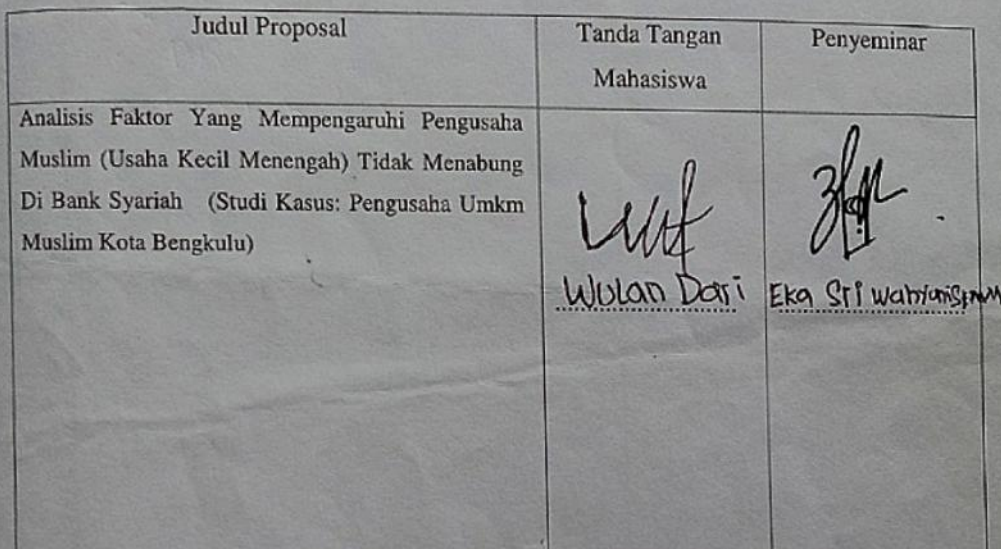 Judul Proposal
Tanda Tangan
Mahasiswa
Penyeminar
Analisis Faktor Yang Mempengaruhi Pengusaha
Muslim (Usaha Kecil Menengah) Tidak Menabung
Di Bank Syariah (Studi Kasus: Pengusaha Umkm
Muslim Kota Bengkulu)
Wulan Dari
Eka Sri Wahyuni